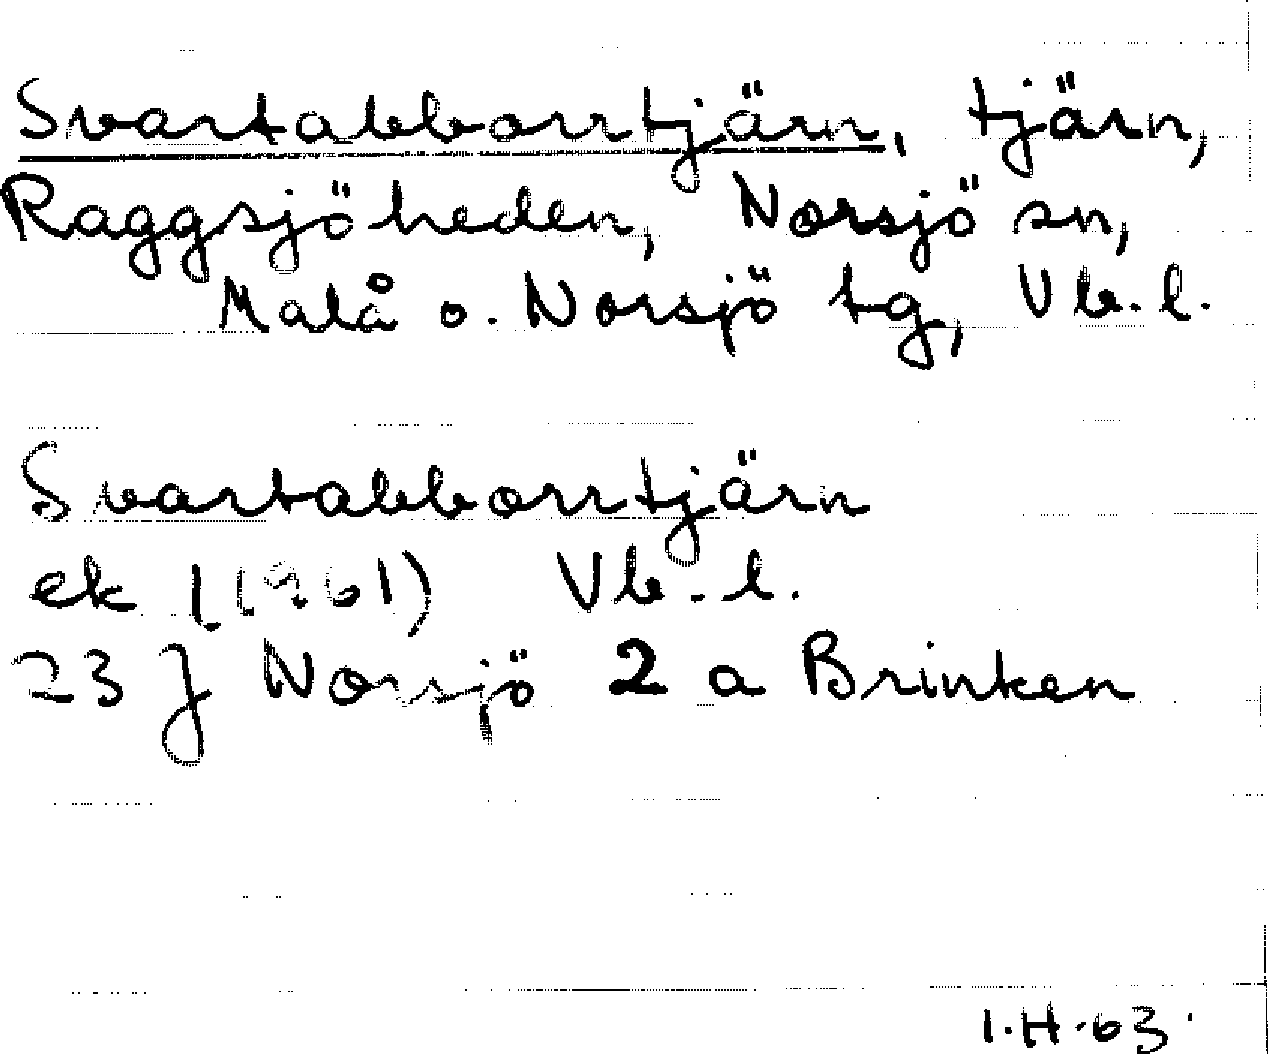 Svartabborrtjärn, tjärn,
Raggsjöheden, Norsjö sn,
Malå o. Norsjö tg, Vb. l.
Svartabborrtjärn
ek (1961) Vb. l.
23 J Norsjö 2 a Brinken
I.H.63.